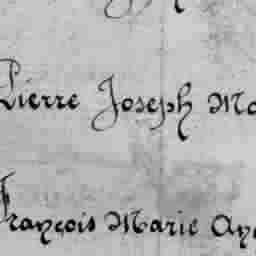 Pierre Joseph Mo
François Marie Ang